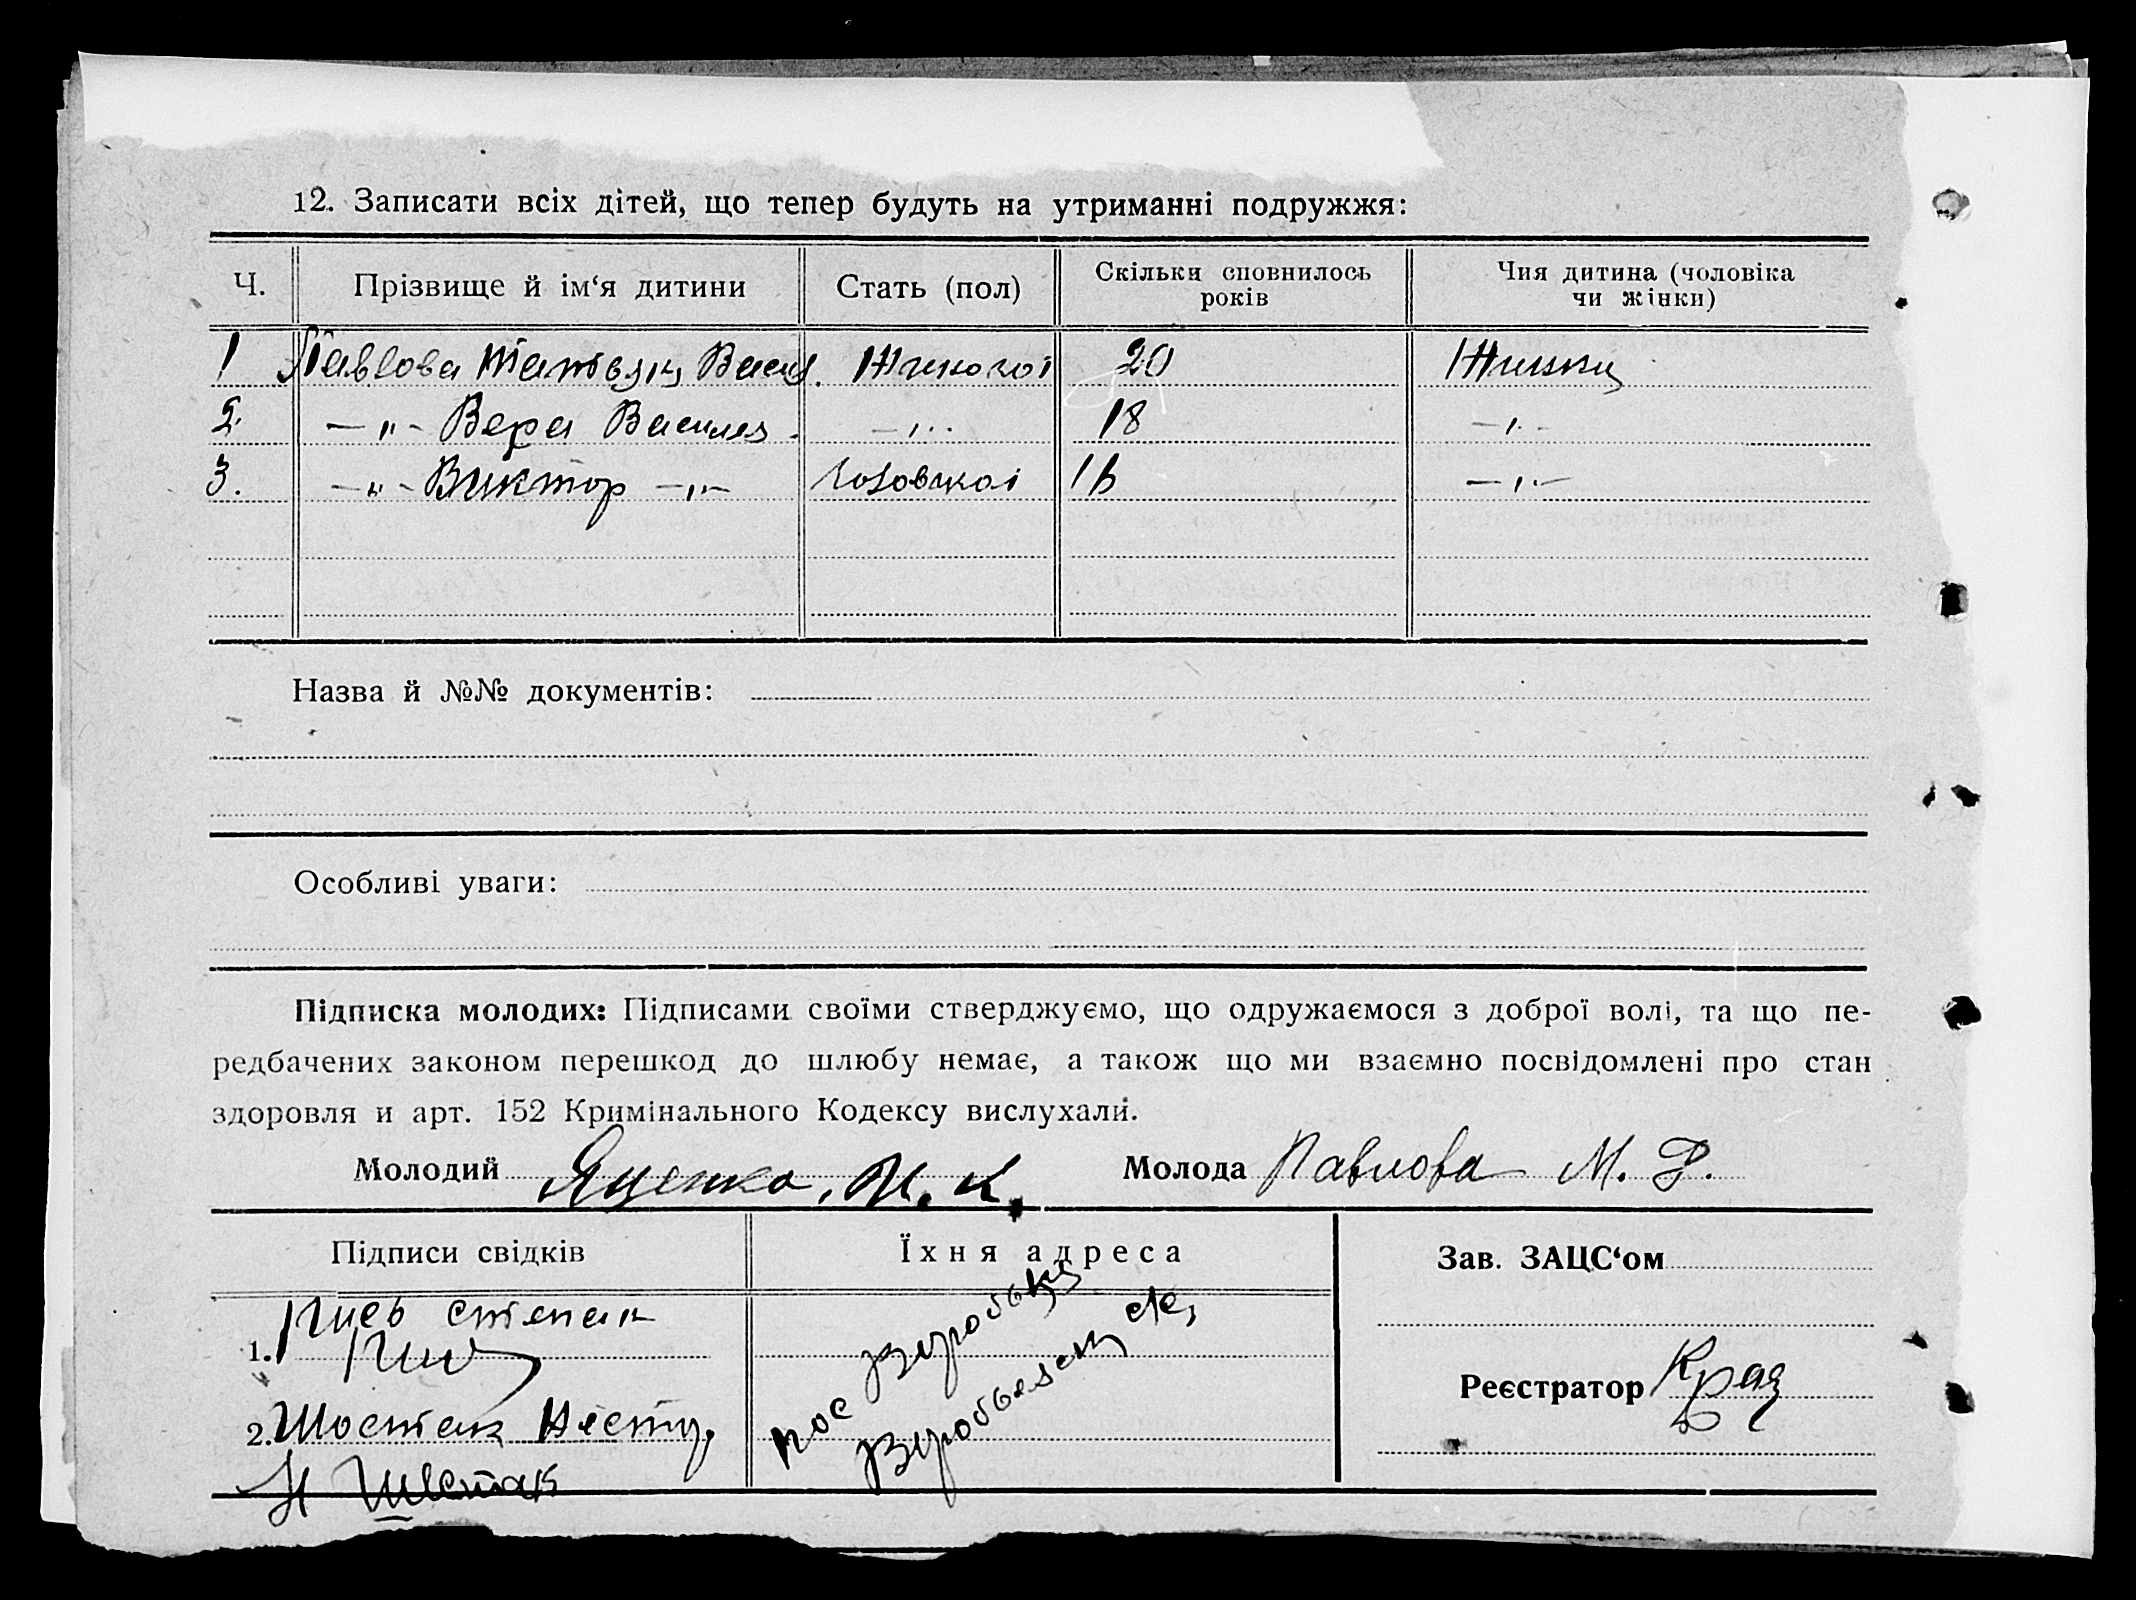 12. Записати всіх дітей, що тепер будуть на утриманні подружжя:
Ч. Прізвище й ім‘я дитини Стать (пол) Скільки сповнилось років Чия дитина (чоловіка чи жінки)
1 Павлова Татьяна Васил. Жіночої 20 Жінки
2. —„— Вера Василя. —„— 18 —„—
3. —„— Виктор —„— Чоловічої 16 —„—
Назва й №№ документів:
Особливі уваги:
Підписка молодих: Підписами своїми стверджуємо, що одружаємося з доброї волі, та що пе-
редбачених законом перешкод до шлюбу немає, а також що ми взаємно посвідомлені про стан
здоровля и арт. 152 Кримінального Кодексу вислухали.
Молодий Яценко, И. К. Молода Павлова М. Ф.
Підписи свідків Їхня адреса Зав. ЗАЦС‘ом
Кись степан
1.
Реєстратор
2. Шостак Нестр.
Н Шостак